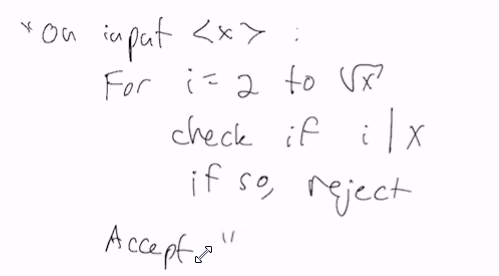 "On input <x> :
For i = 2 to √x
check if i | x
if so, reject
Accept."